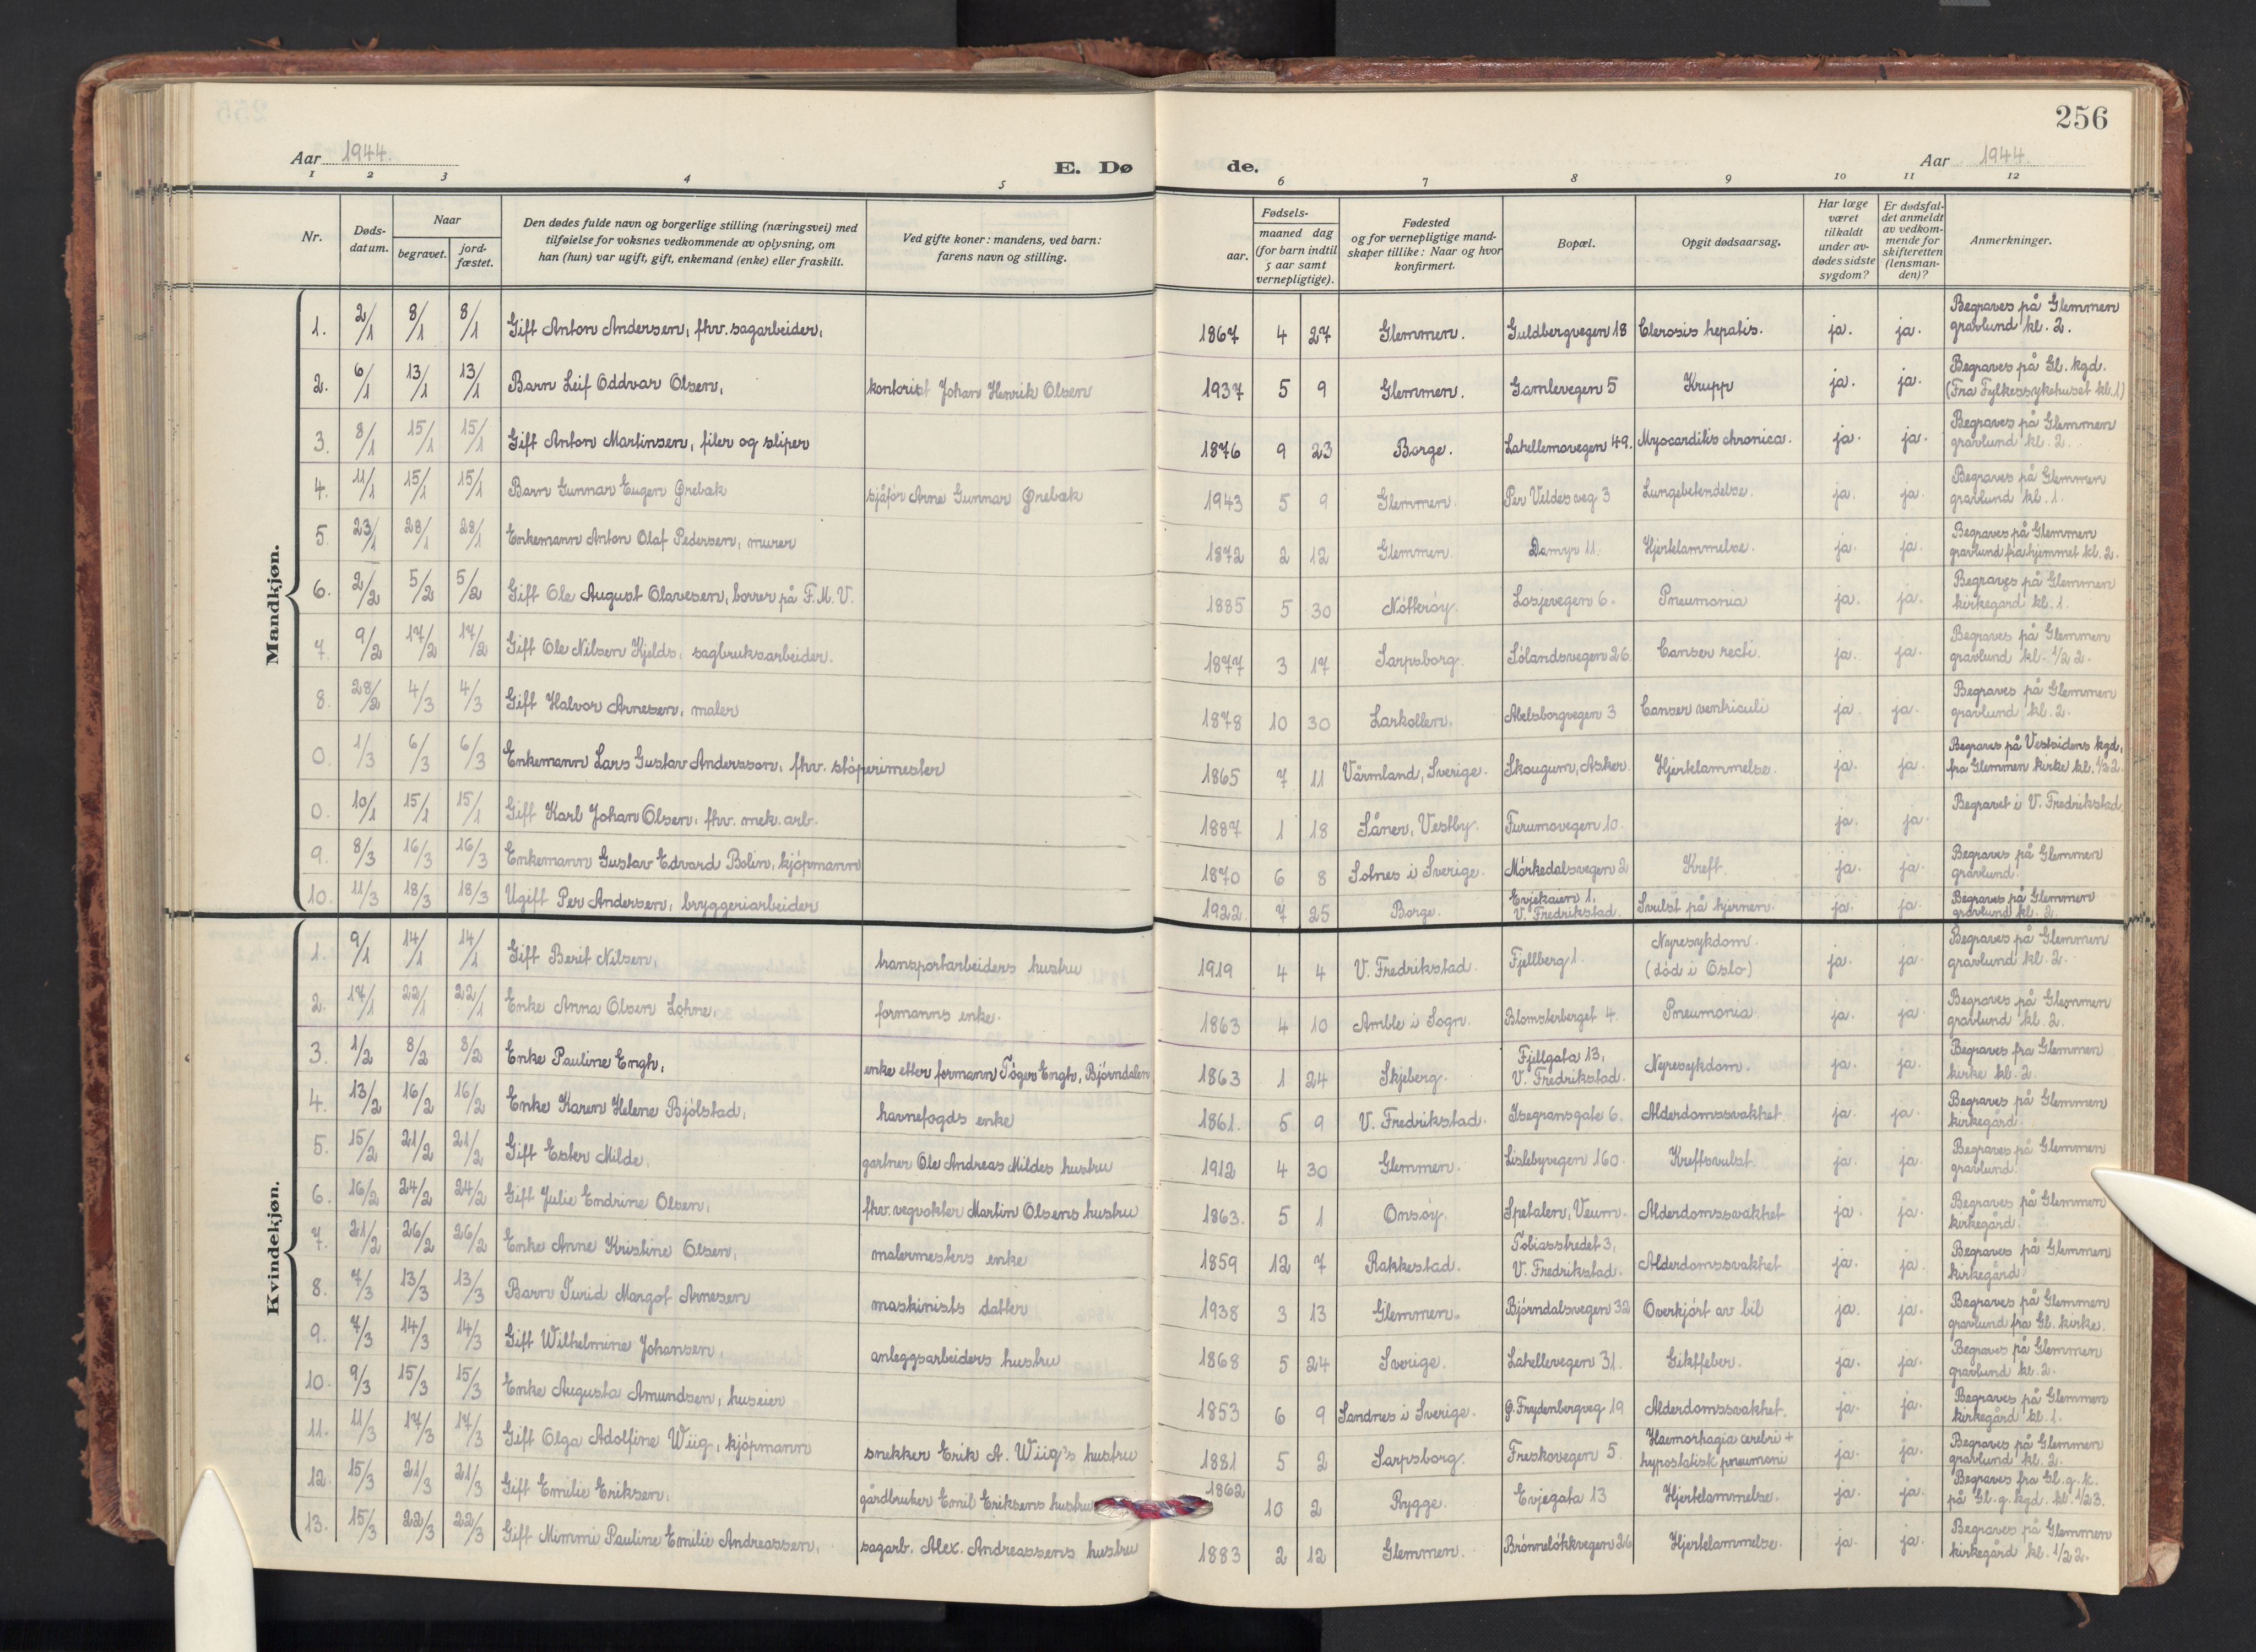 256
Aar 1944. E. Dø de. Aar 1944.
1 2 3 4 5 6 7 8 9 10 11 12
Nr. Døds-datum. Naar begravet. jord-fæstet. Den dødes fulde navn og borgerlige stilling (næringsvei) med tilføielse for voksnes vedkommende av oplysning, om han (hun) var ugift, gift, enkemand (enke) eller fraskilt. Ved gifte koner: mandens, ved barn: farens navn og stilling. Fødsels- aar. maaned dag (for barn indtil 5 aar samt vernepligtige). Fødested og for vernepligtige mand-skaper tillike: Naar og hvor konfirmert. Bopæl. Opgit dødsaarsag. Har læge været tilkaldt under av-dødes sidste sygdom? Er dødsfal-det anmeldt av vedkom-mende for skifteretten (lensman-den)? Anmerkninger.
Mandkjøn.
1. 2/1 8/1 8/1 Gift Anton Andersen, fhv. sagarbeider, 1867 4 27 Glemmen. Guldbergvegen 18 Clerosis hepatis. ja. ja. Begraves på Glemmen gravlund kl. 2.
2. 6/1 13/1 13/1 Barn Leif Oddvar Olsen, kontorist Johan Henrik Olsen 1937 5 9 Glemmen. Gamlevegen 5 Krupp ja. ja. Begraves på Gl. kgd. (Fra Fylkessykehuset kl. 1)
3. 8/1 15/1 15/1 Gift Anton Martinsen, filer og sliper 1876 9 23 Borge. Lahellemovegen 49. Myocarditis chronica. ja. ja. Begraves på Glemmen gravlund kl. 2.
4. 11/1 15/1 15/1 Barn Gunnar Eugen Ørebæk sjåfør Arne Gunnar Ørebæk 1943 5 9 Glemmen. Per Veldes veg 3 Lungebetendelse. ja. ja. Begraves på Glemmen gravlund kl. 1.
5. 23/1 28/1 28/1 Enkemann Anton Olaf Pedersen, murer 1872 2 12 Glemmen. Damyr 11. Hjertelammelse. ja. ja. Begraves på Glemmen gravlund fra hjemmet kl. 2.
6. 2/2 5/2 5/2 Gift Ole August Olavesen, borrer på F.M.V. 1885 5 30 Nøtterøy. Losjevegen 6. Pneumonia ja. ja. Begraves på Glemmen kirkegård kl. 1.
7. 9/2 17/2 17/2 Gift Ole Nilsen Kjelds, sagbruksarbeider. 1877 3 17 Sarpsborg. Sølandsvegen 26. Canser recti. ja. ja. Begraves på Glemmen gravlund kl. 1/2 2.
8. 28/2 4/3 4/3 Gift Halvor Arnesen, maler 1878 10 30 Larkollen. Abelsborgvegen 3 Canser ventriculi ja. ja. Begraves på Glemmen gravlund kl. 2.
0. 1/3 6/3 6/3 Enkemann Lars Gustav Andersson, fhv. støperimester 1865 7 11 Värmland, Sverige. Skougum, Asker. Hjertelammelse. ja. ja. Begraves på Vestsidens kgd. fra Glemmen kirke kl. 1/2 2.
0. 10/1 15/1 15/1 Gift Karl Johan Olsen, fhv. mek. arb. 1887 1 18 Såner, Vestby. Furumovegen 10. ja. ja. Begravet i V. Fredrikstad
9. 8/3 16/3 16/3 Enkemann Gustav Edvard Bolin, kjøpmann 1870 6 8 Solnes i Sverige. Mørkedalsvegen 2 Kreft. ja. ja. Begraves på Glemmen gravlund.
10. 11/3 18/3 18/3 Ugift Per Andersen, bryggeriarbeider 1922. 7 25 Borge. Evjekaien 1, V. Fredrikstad. Svulst på hjernen. ja. ja. Begraves på Glemmen gravlund kl. 2.
Kvindekjøn.
1. 9/1 14/1 14/1 Gift Berit Nilsen, transportarbeiders hustru 1919 4 4 V. Fredrikstad. Fjellberg 1. Nyresykdom. (død i Oslo) ja. ja. Begraves på Glemmen gravlund kl. 2.
2. 17/1 22/1 22/1 Enke Anna Olsen Lohne, formanns enke. 1863 4 10 Amble i Sogn. Blomsterberget 4. Pneumonia. ja. ja. Begraves på Glemmen gravlund kl. 2.
3. 1/2 8/2 8/2 Enke Pauline Engh, enke etter formann Tøger Engh, Bjørndalen 1863 1 24 Skjeberg. Fjellgata 13, V. Fredrikstad. Nyresykdom. ja. ja. Begraves fra Glemmen kirke kl. 2.
4. 13/2 16/2 16/2 Enke Karen Helene Bjølstad, havnefogds enke 1861. 5 9 V. Fredrikstad. Isegransgate 6. Alderdomssvakhet. ja. ja. Begraves på Glemmen kirkegård.
5. 15/2 21/2 21/2 Gift Ester Milde, gartner Ole Andreas Mildes hustru 1912 4 30 Glemmen. Lislebyvegen 160. Kreftsvulst. ja. ja. Begraves på Glemmen gravlund.
6. 16/2 24/2 24/2 Gift Julie Endrine Olsen, fhv. vegvokter Martin Olsens hustru 1863. 5 1 Onsøy. Spetalen, Veum. Alderdomssvakhet ja. ja. Begraves på Glemmen kirkegård.
7. 21/2 26/2 26/2 Enke Anne Kristine Olsen, malermesters enke 1859 12 7 Rakkestad. Tobiasstredet 3, V. Fredrikstad. Alderdomssvakhet ja. ja. Begraves på Glemmen kirkegård.
8. 7/3 13/3 13/3 Barn Turid Margot Arnesen maskinists datter 1938 3 13 Glemmen. Bjørndalsvegen 32 Overkjørt av bil ja. ja. Begraves på Glemmen gravlund fra Gl. kirke.
9. 7/3 14/3 14/3 Gift Wilhelmine Johansen, anleggsarbeiders hustru 1868 5 24 Sverige. Lahellevegen 31. Giktfeber. ja. ja. Begraves på Glemmen gravlund kl. 2.
10. 9/3 15/3 15/3 Enke Augusta Amundsen, huseier 1853 6 9 Sandnes i Sverige. Ø. Frydenbergveg 19 Alderdomssvakhet. ja. ja. Begraves på Glemmen kirkegård kl. 1.
11. 11/3 17/3 17/3 Gift Olga Adolfine Wiig, kjøpmann snekker Erik A. Wiig's hustru 1881 5 2 Sarpsborg. Freskovegen 5. Haemorhagia cerebri + hypostatisk pneumoni ja. ja. Begraves på Glemmen gravlund kl. 2.
12. 15/3 21/3 21/3 Gift Emilie Eriksen, gårdbruker Emil Eriksens hustru 1862 10 2 Rygge. Evjegata 13 Hjertelammelse. ja. ja. Begraves fra Gl. g. k. på Gl. g. kgd. kl. 1/2 3.
13. 15/3 22/3 22/3 Gift Mimmi Pauline Emilie Andreassen, sagarb. Alex. Andreassens hustru 1883 2 12 Glemmen. Brønneløkkvegen 26 Hjertelammelse. ja. ja. Begraves på Glemmen kirkegård kl. 1/2 2.